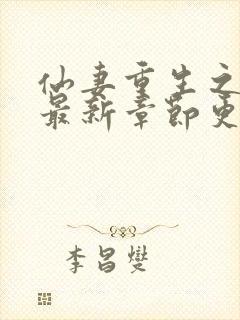 仙妻重生之
最新章节更
李昌燮